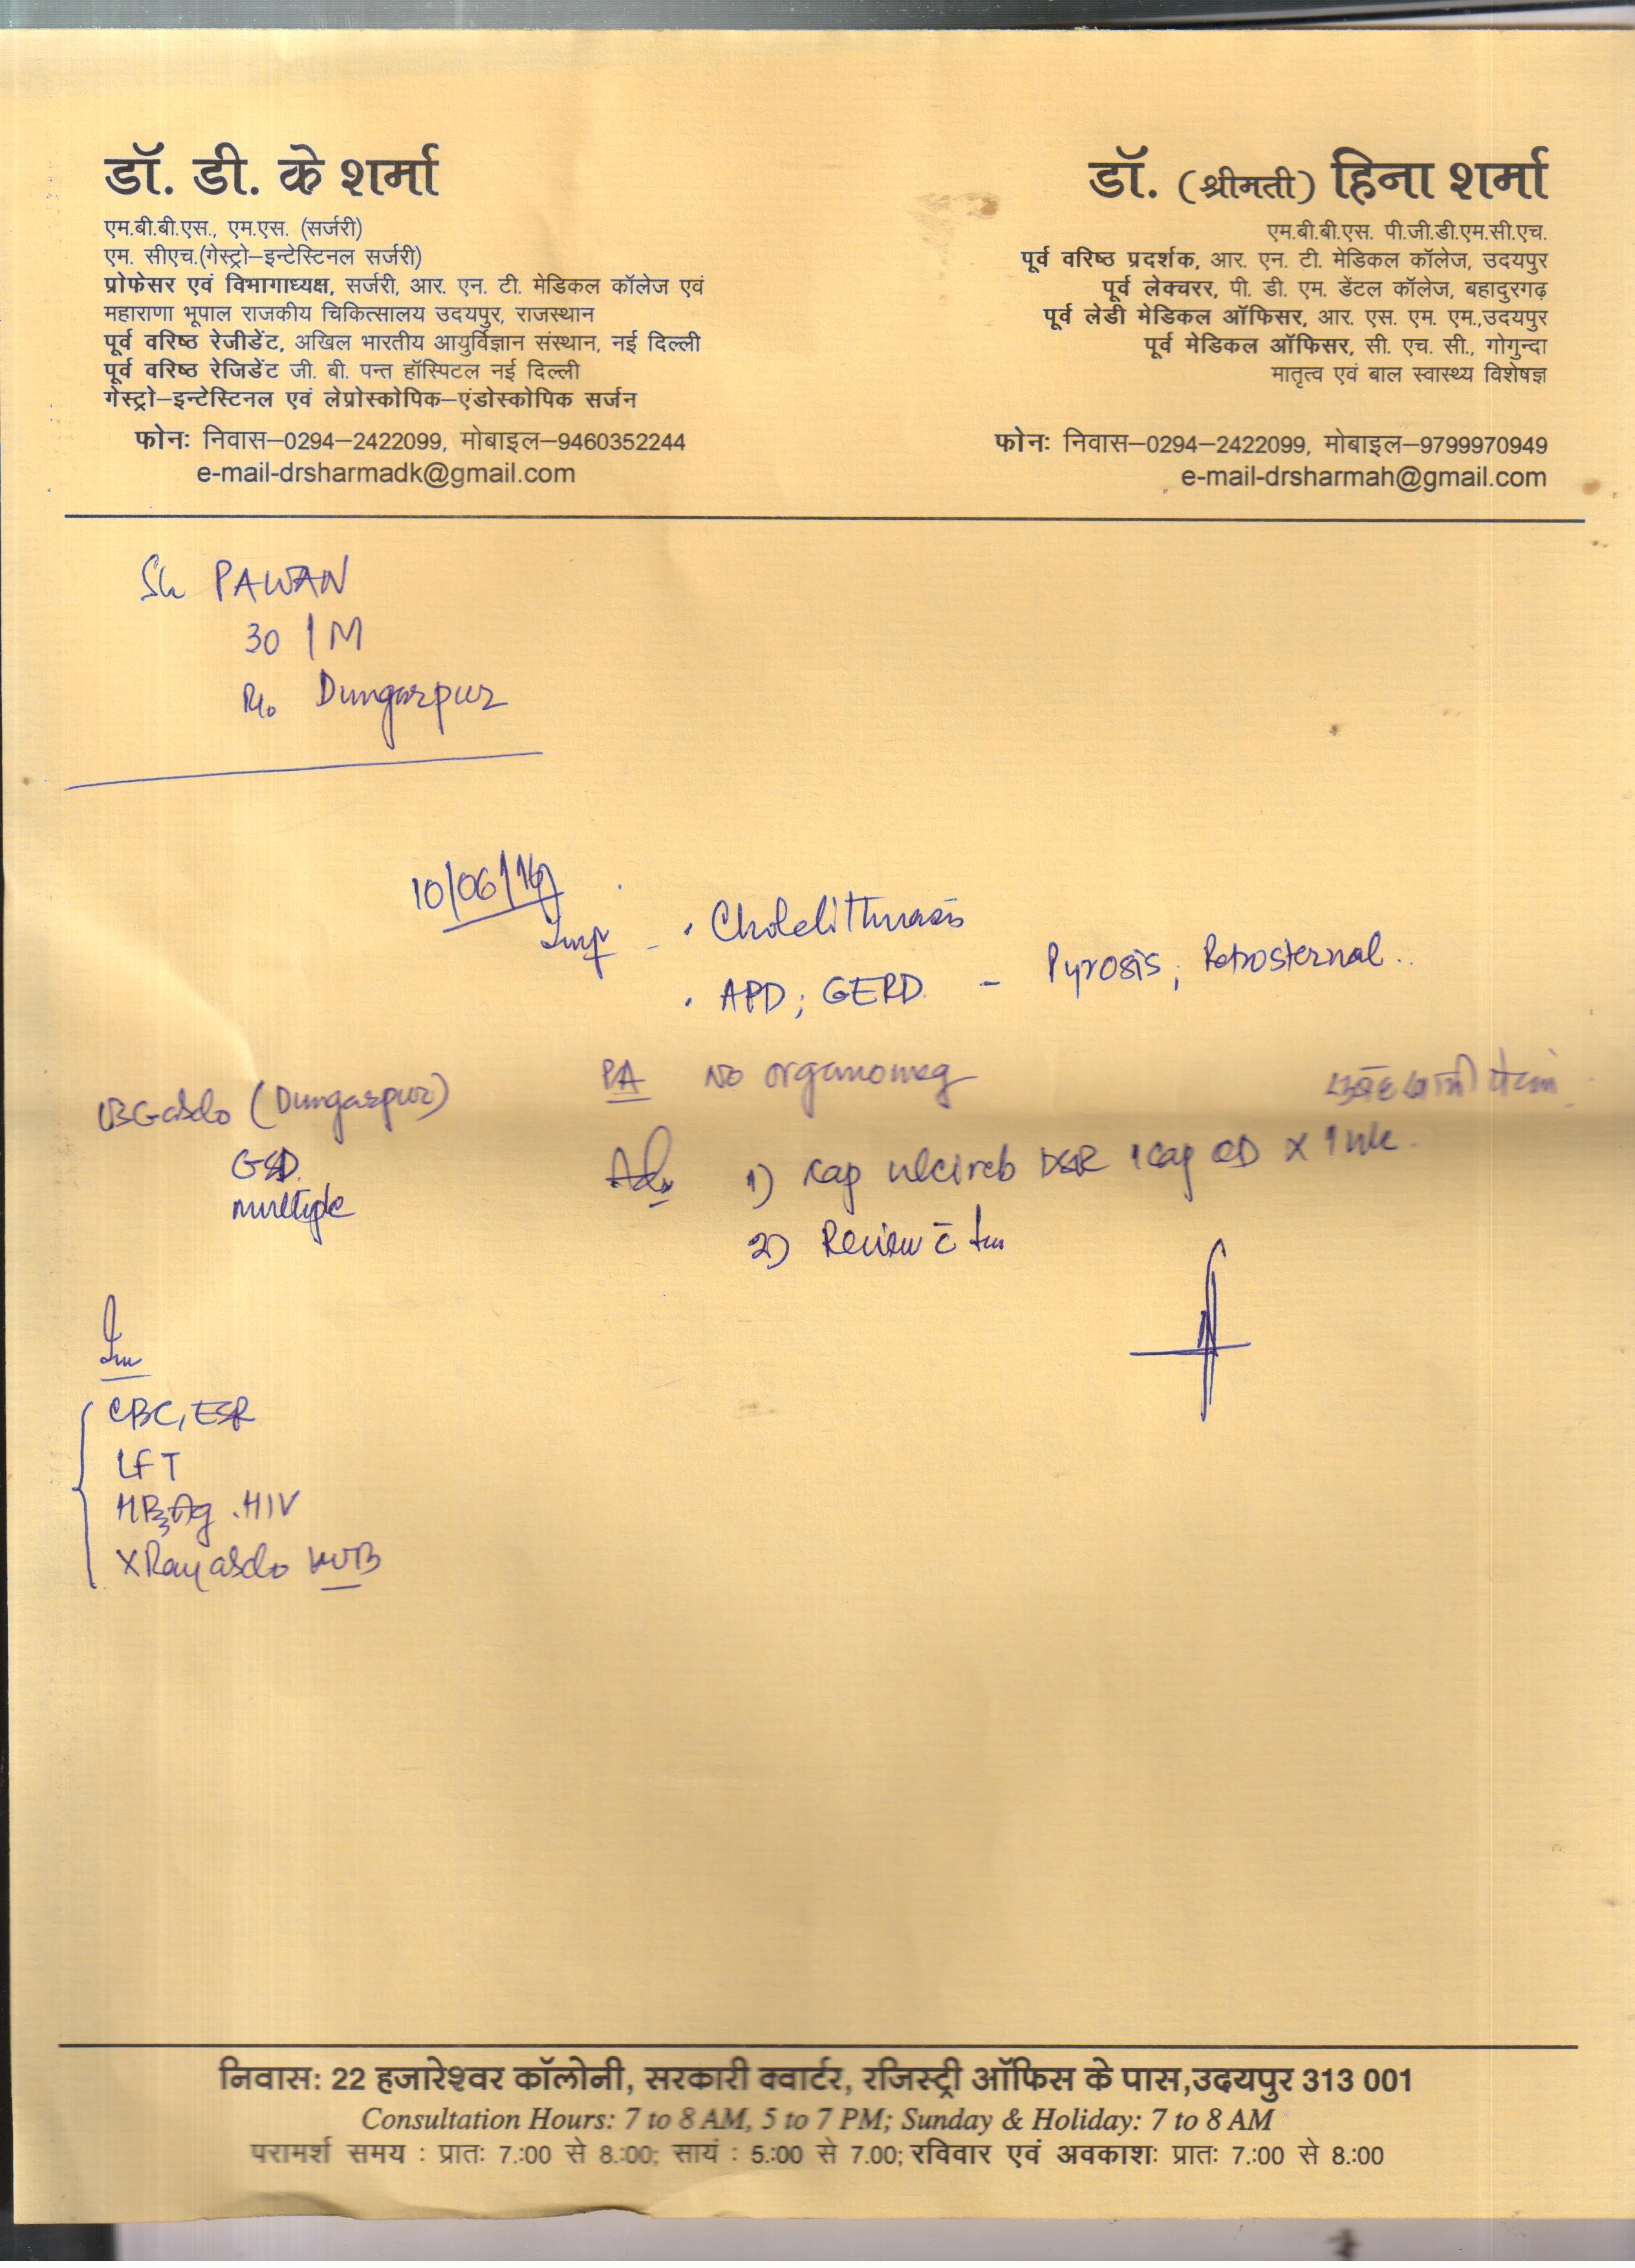 डॉ. डी. के शर्मा
एम.बी.बी.एस., एम.एस. (सर्जरी)
एम. सीएच.(गेस्ट्रो–इन्टेस्टिनल सर्जरी)
प्रोफेसर एवं विभागाध्यक्ष, सर्जरी, आर. एन. टी. मेडिकल कॉलेज एवं
महाराणा भूपाल राजकीय चिकित्सालय उदयपुर, राजस्थान
पूर्व वरिष्ठ रेजीडेंट, अखिल भारतीय आयुर्विज्ञान संस्थान, नई दिल्ली
पूर्व वरिष्ठ रेजिडेंट जी. बी. पन्त हॉस्पिटल नई दिल्ली
गेस्ट्रो–इन्टेस्टिनल एवं लेप्रोस्कोपिक–एंडोस्कोपिक सर्जन
फोनः निवास–0294–2422099, मोबाइल–9460352244
e-mail-drsharmadk@gmail.com
डॉ. (श्रीमती) हिना शर्मा
एम.बी.बी.एस. पी.जी.डी.एम.सी.एच.
पूर्व वरिष्ठ प्रदर्शक, आर. एन. टी. मेडिकल कॉलेज, उदयपुर
पूर्व लेक्चरर, पी. डी. एम. डेंटल कॉलेज, बहादुरगढ़
पूर्व लेडी मेडिकल ऑफिसर, आर. एस. एम. एम.,उदयपुर
पूर्व मेडिकल ऑफिसर, सी. एच. सी., गोगुन्दा
मातृत्व एवं बाल स्वास्थ्य विशेषज्ञ
फोनः निवास–0294–2422099, मोबाइल–9799970949
e-mail-drsharmah@gmail.com
Sh PAWAN
30 / M
R/o Dungarpur
10/06/16
Imp - . Cholelithiasis
. APD; GERD - Pyrosis; Retrosternal..
PA No organomeg
(Dungarpur)
GSD
multiple
Adv 1) Cap DSR 1 cap OD x 1 wk.
2) Review c̄
Inv
CBC, ESR
LFT
HBsAg. HIV
X Ray abdo KUB
निवासः 22 हजारेश्वर कॉलोनी, सरकारी क्वार्टर, रजिस्ट्री ऑफिस के पास,उदयपुर 313 001
Consultation Hours: 7 to 8 AM, 5 to 7 PM; Sunday & Holiday: 7 to 8 AM
परामर्श समय : प्रातः 7.:00 से 8.:00; सायं : 5.:00 से 7.00; रविवार एवं अवकाशः प्रातः 7.:00 से 8.:00